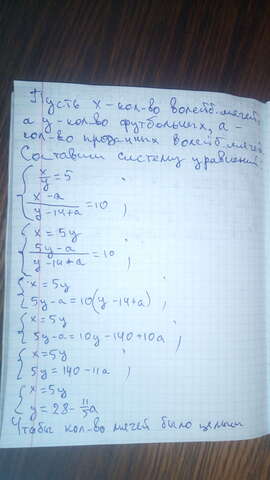 Пусть x - кол-во волейб. мячей,
а y - кол-во футбольных, a -
кол-во проданных волейб. мячей
Составим систему уравнений:
{ x/y = 5
(x-a)/(y-14+a) = 10 ;
{ x = 5y
(5y-a)/(y-14+a) = 10 ;
{ x = 5y
5y-a = 10(y-14+a) ;
{ x = 5y
5y-a = 10y-140+10a ;
{ x = 5y
5y = 140-11a ;
{ x = 5y
y = 28 - 11/5 a
Чтобы кол-во мячей было целым